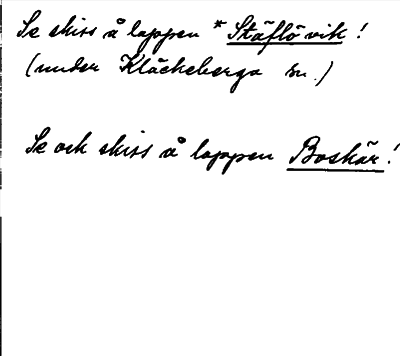 Se skiss å lappen * Stäflö vik !
(under Kläckeberga sn.)
Se och skiss å lappen Boskär !